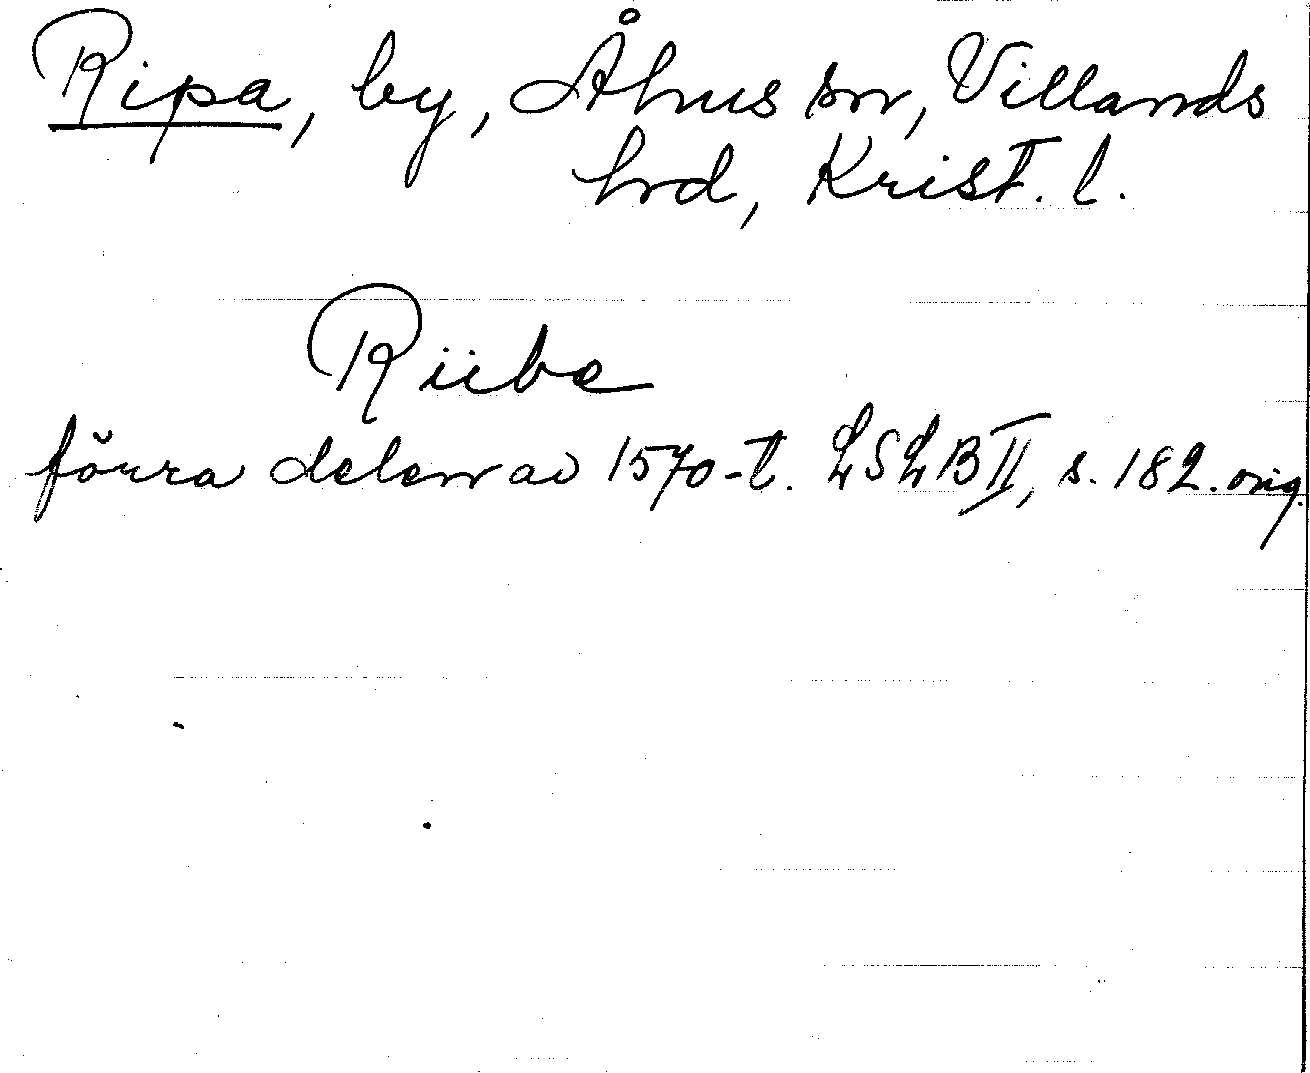 Ripa, by, Åhus sn, Villands
hrd, Krist. l.
Riibe
förra delen av 1570-t. LSLB II, s. 182. orig.